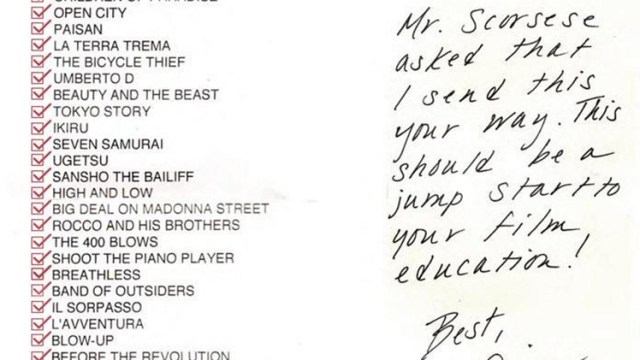 CHILDREN OF PARADISE
OPEN CITY
PAISAN
LA TERRA TREMA
THE BICYCLE THIEF
UMBERTO D
BEAUTY AND THE BEAST
TOKYO STORY
IKIRU
SEVEN SAMURAI
UGETSU
SANSHO THE BAILIFF
HIGH AND LOW
BIG DEAL ON MADONNA STREET
ROCCO AND HIS BROTHERS
THE 400 BLOWS
SHOOT THE PIANO PLAYER
BREATHLESS
BAND OF OUTSIDERS
IL SORPASSO
L'AVVENTURA
BLOW-UP
BEFORE THE REVOLUTION
Mr. Scorsese
asked that
I send this
your way. This
should be a
jump start to
your film
education!
Best,